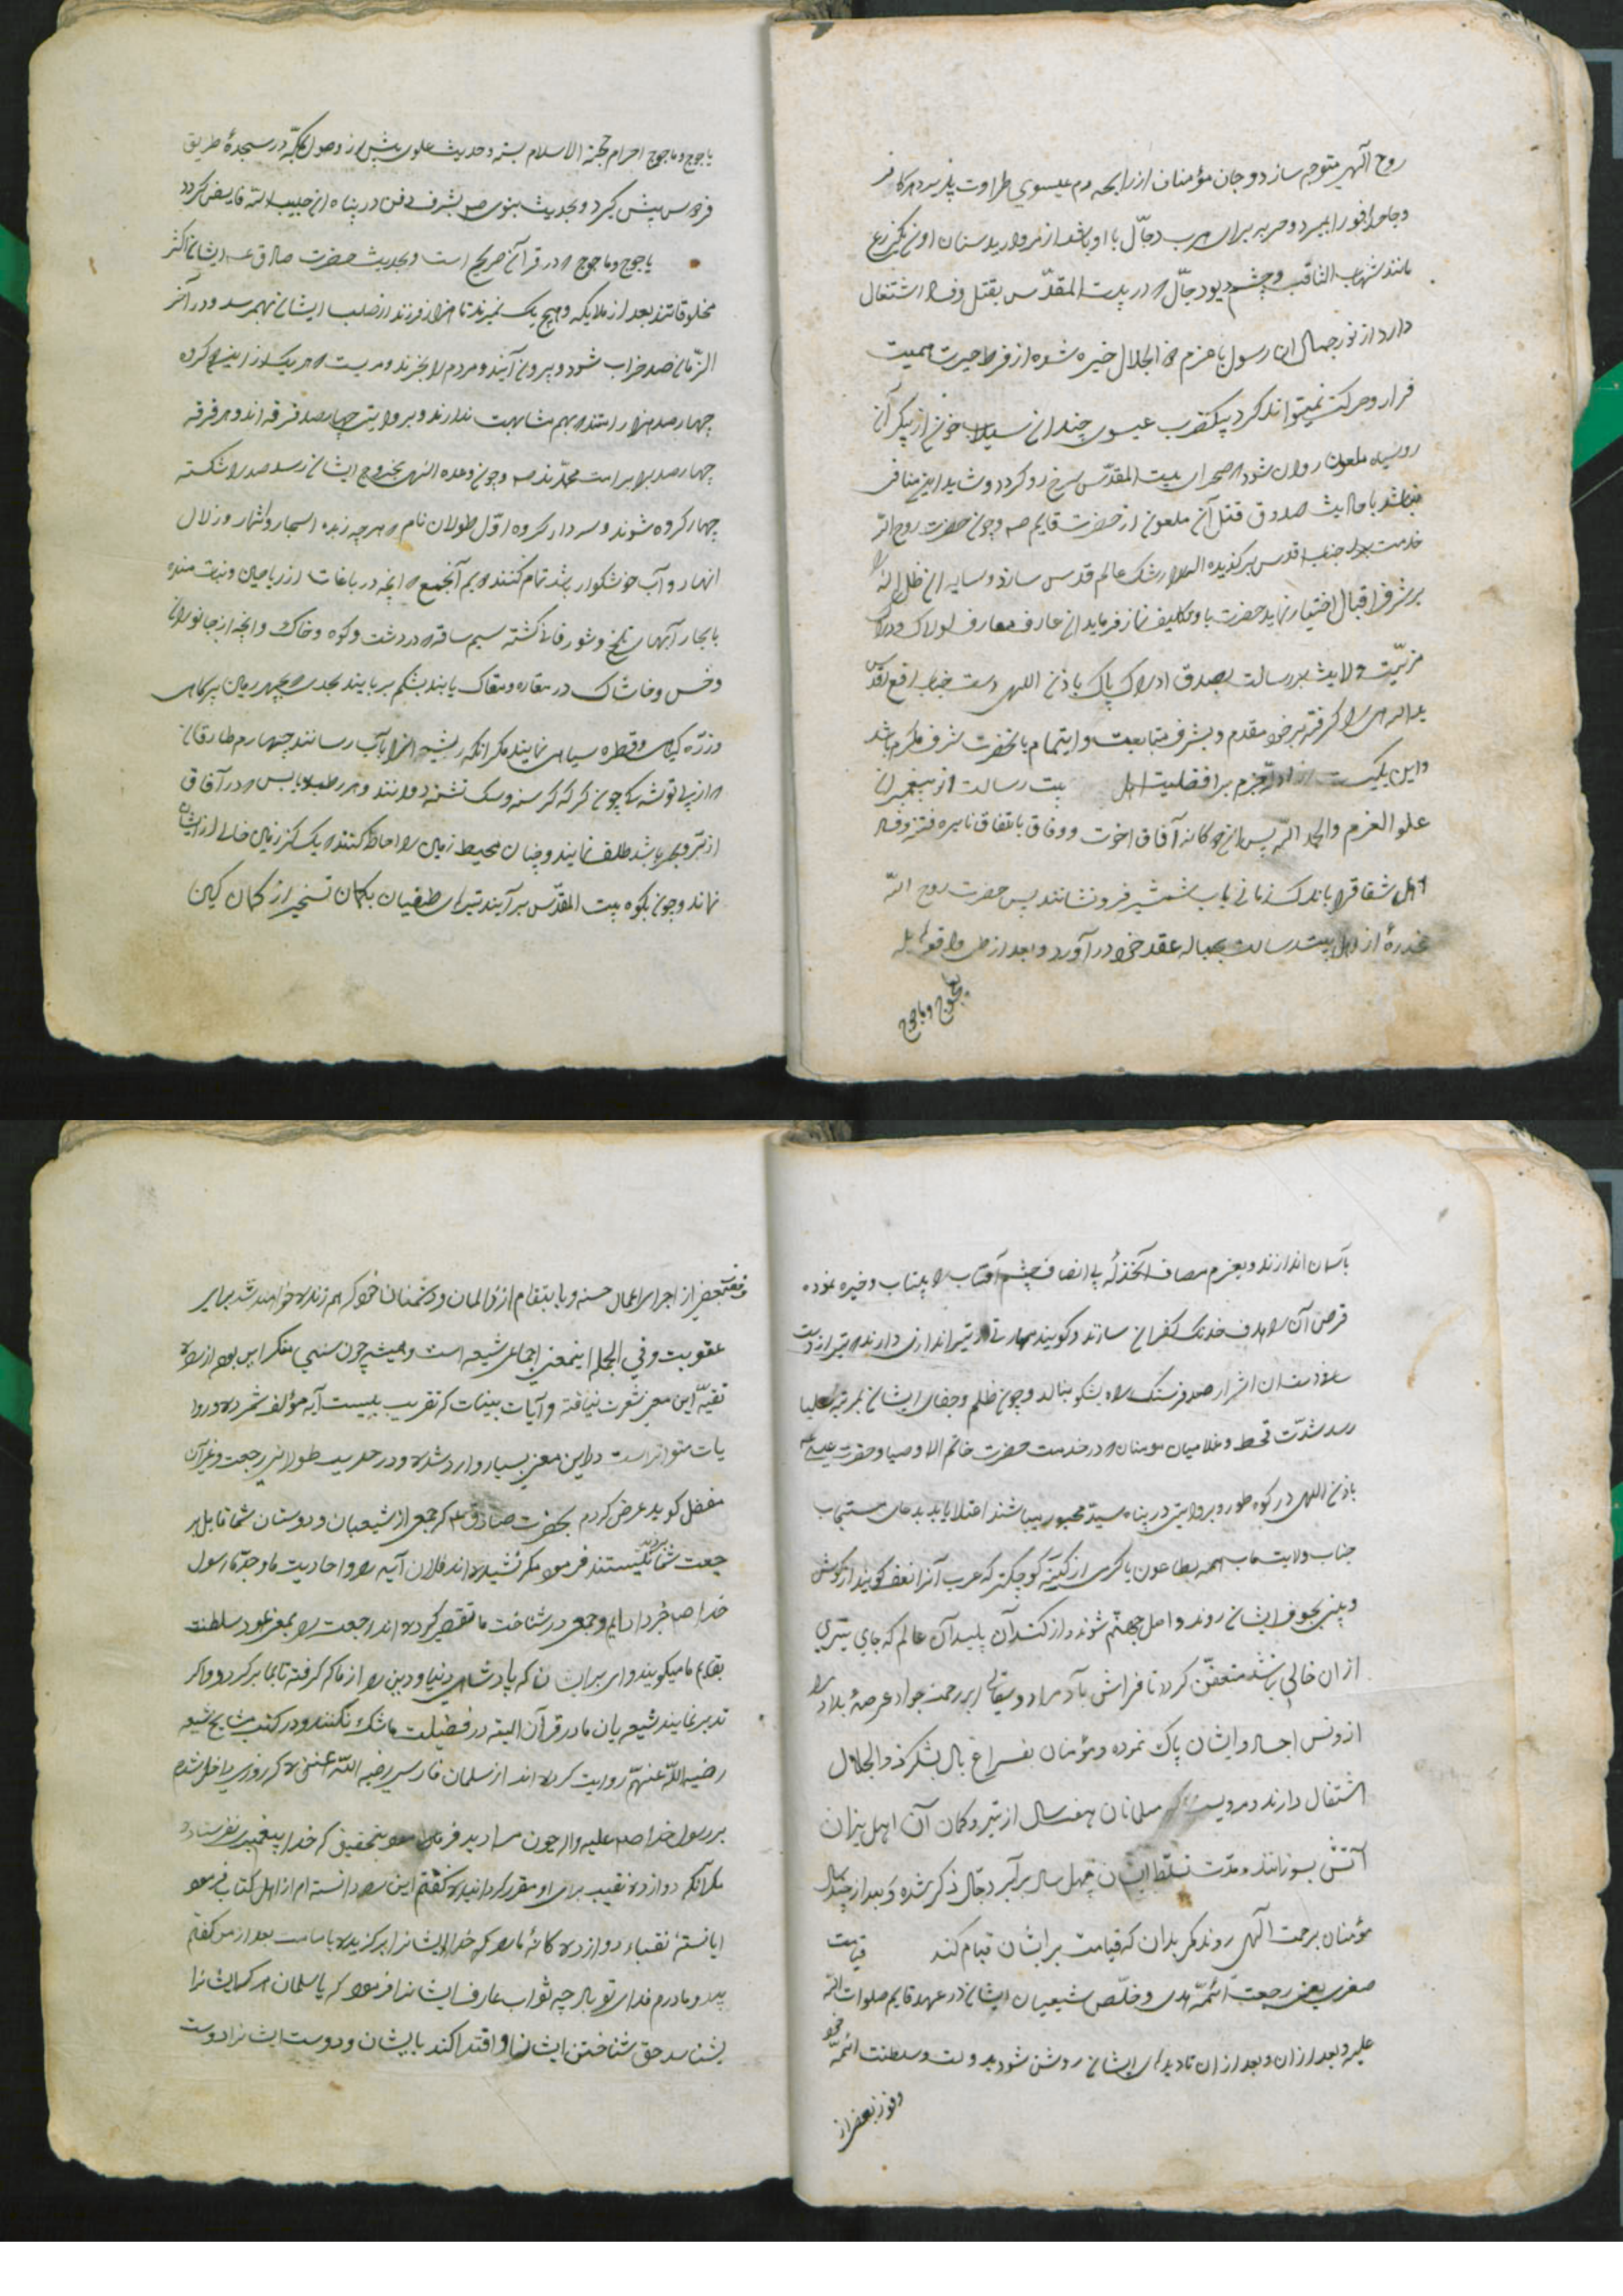 روح آلهی متوجه سازد و جان مؤمنان از رایحه دم عیسوی طراوت پذیرد هر کافر
و جاحد فورا بمیرد و حربه برای حرب دجّال با او باشد از مروارید سنان او
مانند شهاب الثاقب و چشم دیو دجّال که در بیت المقدّس بقتل و اشتغال
دارد از نور جمال ان رسول با عزم ذو الجلال خیره شده از فرط حیرت
فرار و حرکت نمیتواند کرد بیکضرب عیسوی چندان سیلاب خون از پیکر آن
روسیاه ملعون روان شود که صحرای بیت المقدّس سرخ رو کردد و شاید این منافی
نباشد با احادیث صدوق قتل آن ملعون از حضرت قایم ص و چون حضرت روح الله
خدمت جناب اقدس برکزیده اله را رشک عالم قدس سازد و سایه ان ظل اله را
بر فرق اقبال اختیار نماید حضرت باو تکلیف نماز فرماید ان عارف معارف لولاک و
مزیّت ولایت بر رسالت بصدق ادراک پاک باذن اللهی دست جناب ارفع اقدس
ید الهی را کرفته بر خود مقدم و بشرف متابعت و ایتمام بانحضرت مشرف و مکرم باشد
و این یکیست از ادله جزم بر افضلیت اهل بیت رسالت از پیغمبران
علو العزم والحمد الله پس ان دو کانه آفاق اخوت و وفاق باتفاق نایره فتنه و فساد
اهل شقاق را باندک زمانی بآب شمشیر فرو نشانند پس حضرت روح الله
مخدرهٔ از اهل بیت رسالت بحباله عقد خود در آورد و بعد از طی واقعه
یاجوج و ماجوج
یاجوج و ماجوج احرام حجة الاسلام بسته و حدیث علوی پیش از وصول بمکّه در سجدهٔ طریق
فردوس پیش کیرد و بحدیث نبوی ص بشرف دفن در پناه ان حبیب الله فایض کردد
یاجوج و ماجوج که در قرآن صریح است و بحدیث حضرت صادق ع ایشان اکثر
مخلوقاتند بعد از ملایکه و هیچ یک نمیرند تا هزار فرزند از صلب ایشان بهم رسد و در آخر
الزّمان سد خراب شود و بیرون آیند و مردم را بخورند و مرویست که هر یک از این کروه
چهار صد هزار امتند که بهم مشابهت ندارند و بروایتی چهار صد فرقه اند و هر فرقه
چهار صد برابر امت محمّدند ص و چون وعده الهی بخروج ایشان رسد سد را شکسته
چهار کروه شوند و سردار کروه اوّل طولان نام که هر چه زبده اشجار و اثمار و زلال
انهار و آب خوشکوار باشد تمام کنند دویم آنجمع که انچه در باغات از ریاحین و نبات مانده
با بحار آبهای تلخ و شور فانی کشته سیم ساقه که در دشت و کوه و خاک و انچه از جانوران
و خس و خاشاک در مغاره و مغاک یابند بشکم بر بایند بحدی که چهره زمین بپر کاهی
و ذرّه کیاهی و قطره سیاهی نمایند مکر انکه ریشه انرا بآب رسانند چهارم طارقان
که از پی توشه یک چون کرک کرسنه و سک تشنه دوانند و هر رطب و یابس که در آفاق
از برّ و بحر باشد طلف نمایند و چنان محیط زمین را احاطه کنند که یک کز زمین خالی از ایشان
نماند و چون بکوه بیت المقدّس بر آیند تیر ای طغیان بکمان تسخیر از کمان کین
بآسمان اندازند و بعزم مصاف آنخذلهٔ بی انصاف چشم آفتاب را بیتاب و خیره نموده
قرص آن را هدف خدنک کفران سازند و کویند مهارتی در تیر اندازی دارند که تیر از دست
ان اشرار صد فرسنک راه بشکوه بنالد و چون ظلم و جفای ایشان بمرتبه علیا
رسد شدّت قحط و غلا میان مومنان که در خدمت حضرت خاتم الاوصیا و حضرت عیسی ع
باذن اللهی در کوه طور و بروایتی در پناه سیّد محبور باشند اعتلا یابد بدعای مستجاب
جناب ولایت مآب همه بطاعون یا کرمی از کنه کوچکتر که عرب آنرا نغف کویند از کوش
و بینی بجوف ایشان روند و اصل جهنّم شوند و از کند آن پلیدان عالم که جای تیری
ازان خالی نباشد متعفّن کردد تا فراش باد مراد و سقای ابر رحمت جواد عرصهٔ بلاد را
از ونس اجساد ایشان پاک نموده و مؤمنان بفراغ بال بشکر ذو الجلال
اشتغال دارند و مرویست که مسلمانان هفت سال از تیر و کمان آن اهل نیران
آتش بسوزانند و مدّت تسلّط ایشان چهل سال برابر دجّال ذکر شده و بعد از چند سال
مؤمنان برحمت آلهی روند مکر بدان که قیامت بر ایشان قیام کند قیامت
صغری یعنی رجعت ائمّه هدی و خلّص شیعیان ایشان در عهد قایم صلوات الله
علیه و بعد ازان و بعد ازان تا دیدهای ایشان روشن شود بدولت و سلطنت ائمّه خود
و فوز بعضی از
و فوز بعضی از اجرای اعمال حسنه و با انتقام از ظالمان و دشمنان خود که هم زنده خواهند شد برای
عقوبت و فی الجمله اینمعنی اجماعی شیعه است و همیشه چون سنّی منکر این بود از راه
تقیّه این معنی شهرت نیافته و آیات بینات که تقریب ببیست آیه مؤلف شمرده و روا
یات متواتر است در این معنی بسیار وارد شده و در حدیث طولانی رجعت و غیر آن
مفضل کوید عرض کردم بحضرت صادق ع که جمعی از شیعیان و دوستان شما قابل بر
جعت شما نیستند فرمود مکر نشنیده اند فلان آیه را و احادیث ما و جدّ ما رسول
خدا ص خبر داده ایم و جمعی در شناخت ما تقصیر کرده اند رجعت را بمعنی عود سلطنت
بقایم ما میکویند وای بر ایشان که پادشاهی دنیا و دین را از ما که کرفته تا بما بر کردد و اکر
تدبر نمایند شیعیان ما در قرآن البته در فضیلت ما شک نکنند و در کتب مشایخ شیعه
رضی الله عنهم روایت کرده اند از سلمان فارسی رضی الله عنه که روزی داخل شدم
بر رسول خدا ص علیه و اله چون مرا دید فرمود بتحقیق که خدا پیغمبری نفرستاده
مکر آنکه دوازده نقیب برای او مقرر کردانیده کفتم این را دانسته ام از اهل کتاب فرمود
ایا دانستهٔ نقباء دوازده کانهٔ ما را که خدا ایشانرا برکزیده بامامت بعد از من کفتم
پدر و مادرم فدای تو باد چه ثواب عارف ایشانرا فرمود که یا سلمان هر که ایشانرا
بشناسد حق شناختن ایشان و اقتدا کند بایشان و دوست ایشانرا دوست